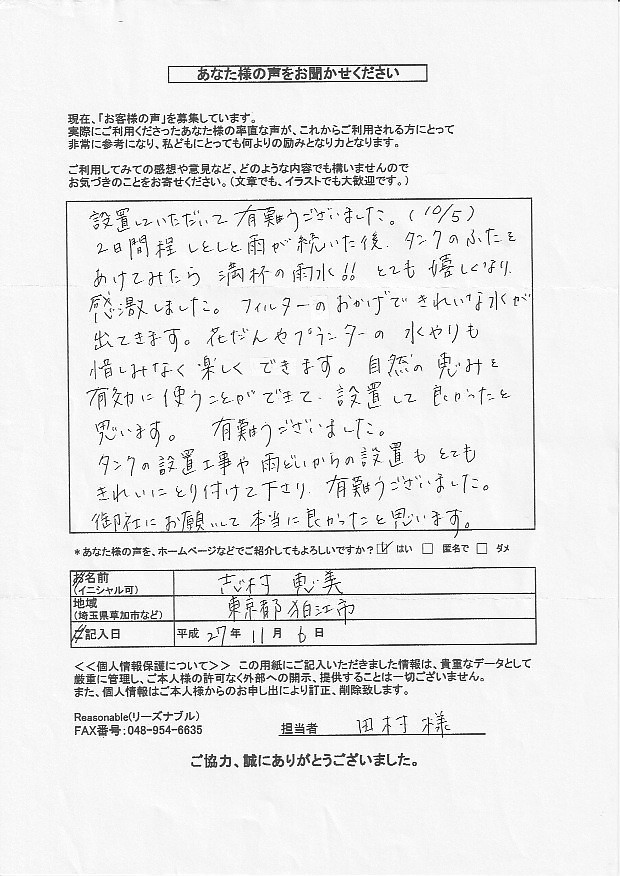 あなた様の声をお聞かせください
現在、「お客様の声」を募集しています。
実際にご利用くださったあなた様の率直な声が、これからご利用される方にとって
非常に参考になり、私どもにとっても何よりの励みとなり力となります。
ご利用してみての感想や意見など、どのような内容でも構いませんので
お気づきのことをお寄せください。(文章でも、イラストでも大歓迎です。)
設置していただいて有難うございました。(10/5)
2日間程しとしと雨が続いた後、タンクのふたを
あけてみたら満杯の雨水!! とても嬉しくなり、
感激しました。フィルターのおかげできれいな水が
出てきます。花だんやプランターの水やりも
惜しみなく楽しくできます。自然の恵みを
有効に使うことができて、設置して良かったと
思います。 有難うございました。
タンクの設置工事や雨どいからの設置もとても
きれいにとり付けて下さり、有難うございました。
御社にお願いして本当に良かったと思います。
*あなた様の声を、ホームページなどでご紹介してもよろしいですか? ☑ はい □ 匿名で □ ダメ
お名前 志村 恵美
(イニシャル可)
地域 東京都狛江市
(埼玉県草加市など)
ご記入日 平成 27年 11月 6日
<<個人情報保護について>> この用紙にご記入いただきました情報は、貴重なデータとして
厳重に管理し、ご本人様の許可なく外部への開示、提供することは一切ございません。
また、個人情報はご本人様からのお申し出により訂正、削除致します。
Reasonable(リーズナブル)
FAX番号:048-954-6635 担当者 田村様
ご協力、誠にありがとうございました。